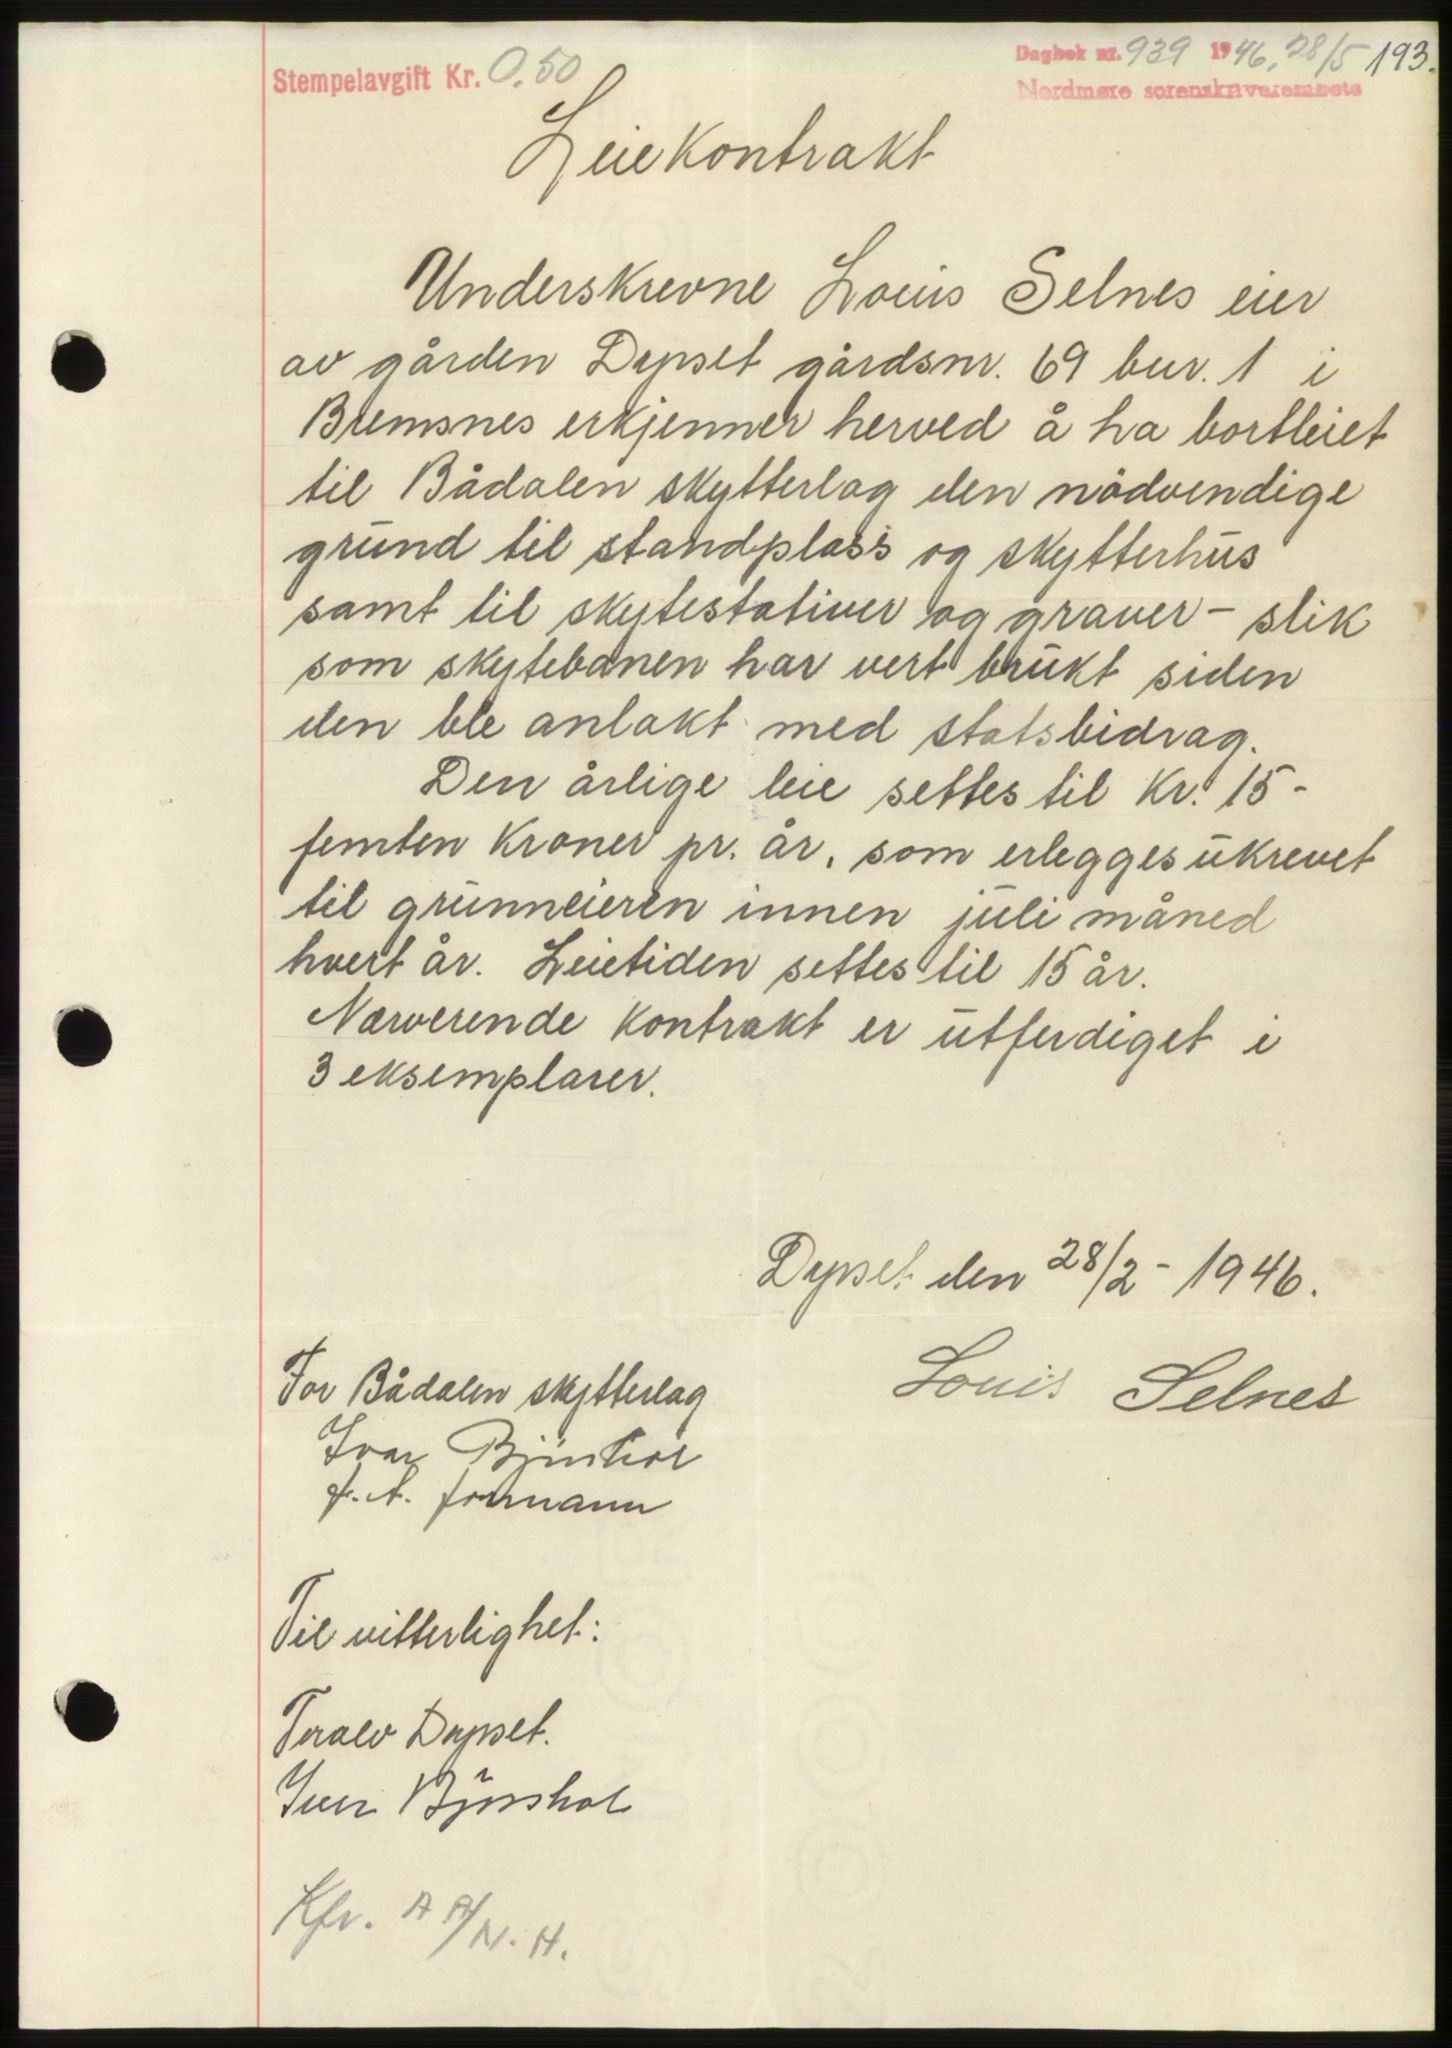 Stempelavgift Kr. 0,50
Dagbok nr. 939 1946, 28/5 193.
Nordmøre sorenskriverembete
Leiekontrakt
Underskrevne Louis Selnes eier
av gården Dypset gårdsnr. 69 bur. 1 i
Bremsnes erkjenner herved å ha bortleiet
til Bådalen skytterlag den nödvendige
grund til standplass og skytterhus
samt til skytestativer og graver - slik
som skytebanen har vert brukt siden
den ble anlakt med statsbidrag.
Den årlige leie settes til Kr. 15 -
femten Kroner pr. år, som erlegges ukrevet
til grunneieren innen juli måned
hvert år. Leietiden settes til 15 år.
Nærverende Kontrakt er utferdiget i
3 eksemplarer.
Dypset den 28/2 - 1946.
For Bådalen skytterlag
Louis Selnes
Ivar
f. t. formann
Til vitterlighet:
Toralv Dypset.
Iver
Kfr. A A/N. H.